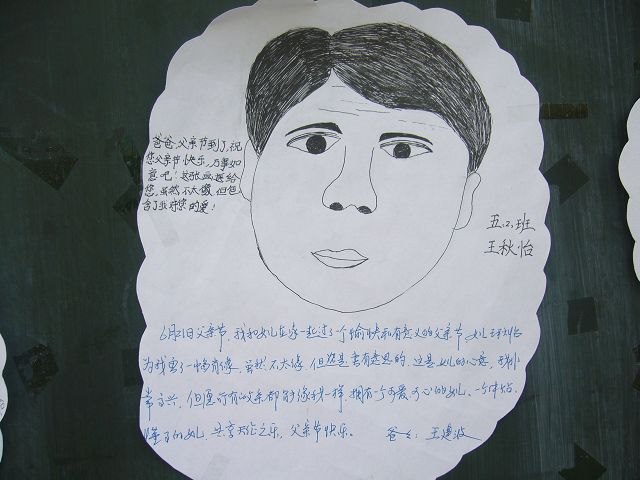 爸爸,父亲节到了,祝
您父亲节快乐,万事如
意吧!这张画送给
您,虽然不太像,但包
含了我对您的爱!
五.2.班
王秋怡
6月21日父亲节,我和女儿在家一起过了一个愉快和有意义的父亲节,女儿
为我画了一幅肖像,虽然不太像,但还是蛮有意思的,这是女儿的心意,我非
常高兴,但愿所有的父亲都能像我一样,拥有一个可爱、可心的女儿,一个
的女儿,共享天伦之乐,父亲节快乐。 爸爸:王建波